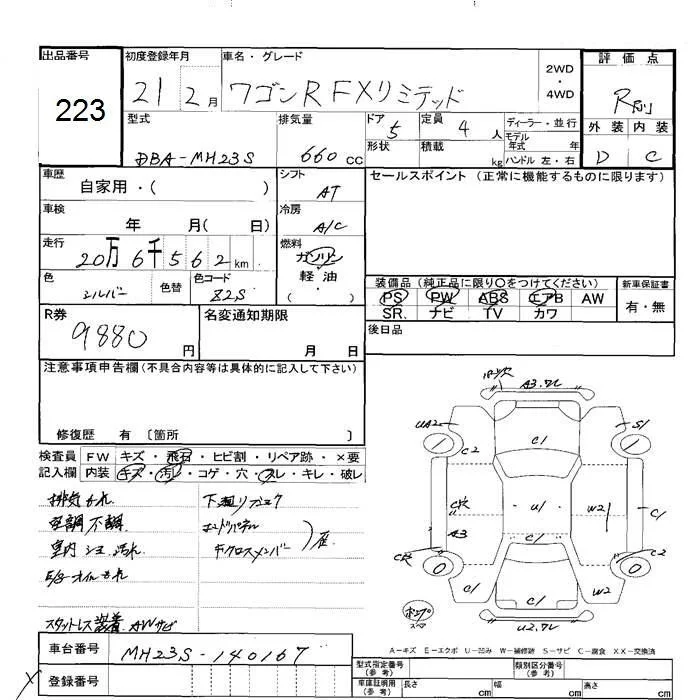 出品番号
223
初度登録年月
21 2月
車名・グレード
ワゴンR FXリミテッド
2WD
・
4WD
評価点
R
外装 内装
D C
型式
DBA-MH23S
排気量
660 cc
ドア
5
形状
定員
4 人
積載
kg
ディーラー・並行
モデル
年式 年
ハンドル 左・右
車歴
自家用・( )
シフト
AT
セールスポイント (正常に機能するものに限ります)
車検
年 月( 日)
冷房
A/C
走行
20万6千562km
燃料
ガソリン
軽油
( ・ )
色
シルバー
色替
色コード
Z2S
装備品 (純正品に限り〇をつけてください)
PS PW ABS エアB AW
SR ナビ TV カワ
新車保証書
有・無
R券
9880
円
名変通知期限
月 日
後日品
注意事項申告欄(不具合内容等は具体的に記入して下さい)
修復歴 有 〔箇所 〕
検査員
記入欄
FW キズ・飛石・ヒビ割・リペア跡・×要
内装 キズ・汚レ・コゲ・穴・スレ・キレ・破レ
排気もれ
空調不調
E/gオイルもれ
スタットレス装着 AWサビ
A3.ワレ
UA2
S1
C2
C1
U1
W2
C1
A3
C1
C2
C1
W2
C1
U2.ワレ
A-キズ E-エクボ U-凹み W-補修跡 S-サビ C-腐食 XX-交換済
車台番号
MH23S-140167
登録番号
型式指定番号
(参考)
類別区分番号
(参考)
車庫証明用
(参考)
長さ cm
幅 cm
高さ cm